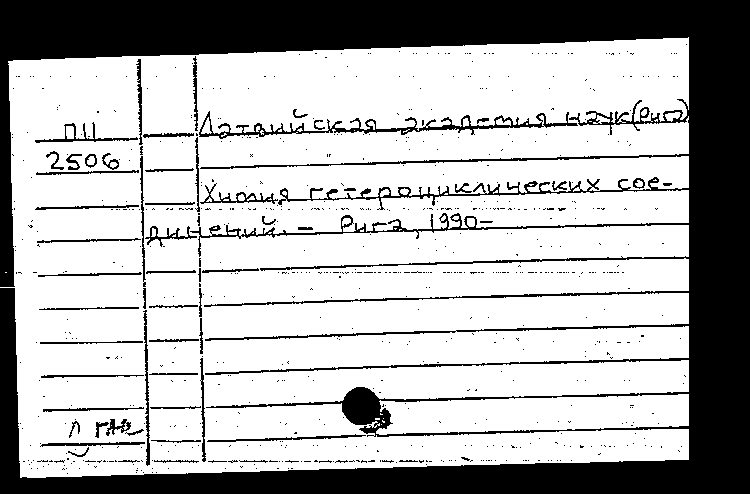 П11
2506
Латвийская академия наук (Рига)
Химия гетероциклических сое-
динений. – Рига, 1990–